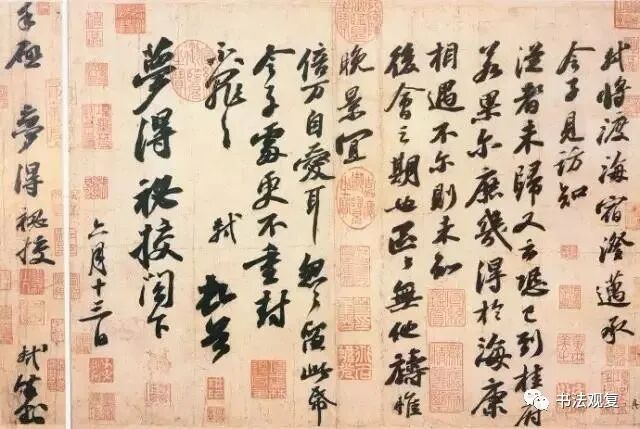 軾將渡海宿澄邁承
令子見訪知
從者未歸又云恐已到桂府
若果爾庶幾得於海康
相遇不爾則未知
後會之期也區區無他禱惟
晚景宜
倍萬自愛耳忽忽留此紙
令子處更不重封
不罪不罪軾頓首
夢得祕校閣下
六月十三日
手啟夢得祕校
軾封
书法观复